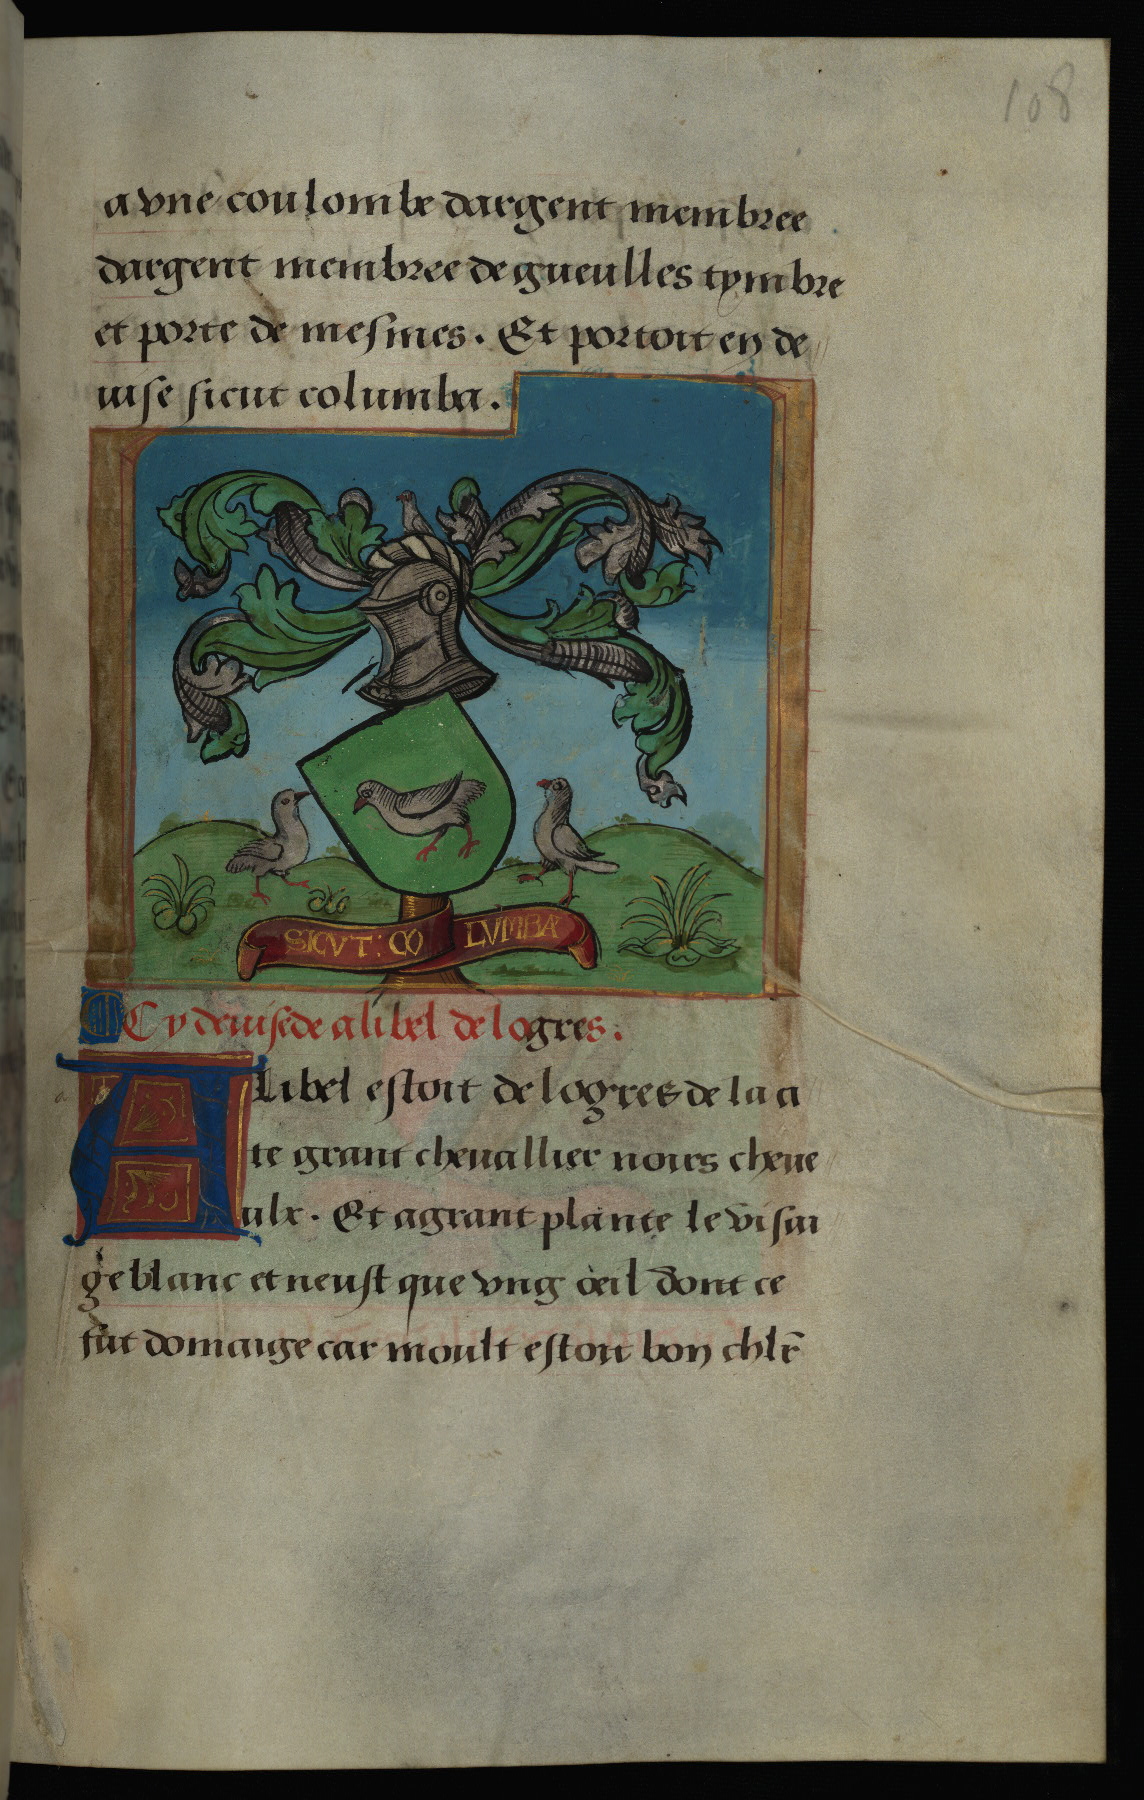 108
a vne coulombe dargent membree
dargent membree de gueulles tymbre
et porte de mesmes. Et portoit en de
uise sicut columba.
SICVT: CO LVMBA
Cy deuise de alibel de logres.
Alibel estoit de logres de la a
te grant cheuallier noirs cheue
ulx. Et a grant plante le visai
ge blanc et neust que vng oeil dont ce
fut domaige car moult estoit bon chlr̄